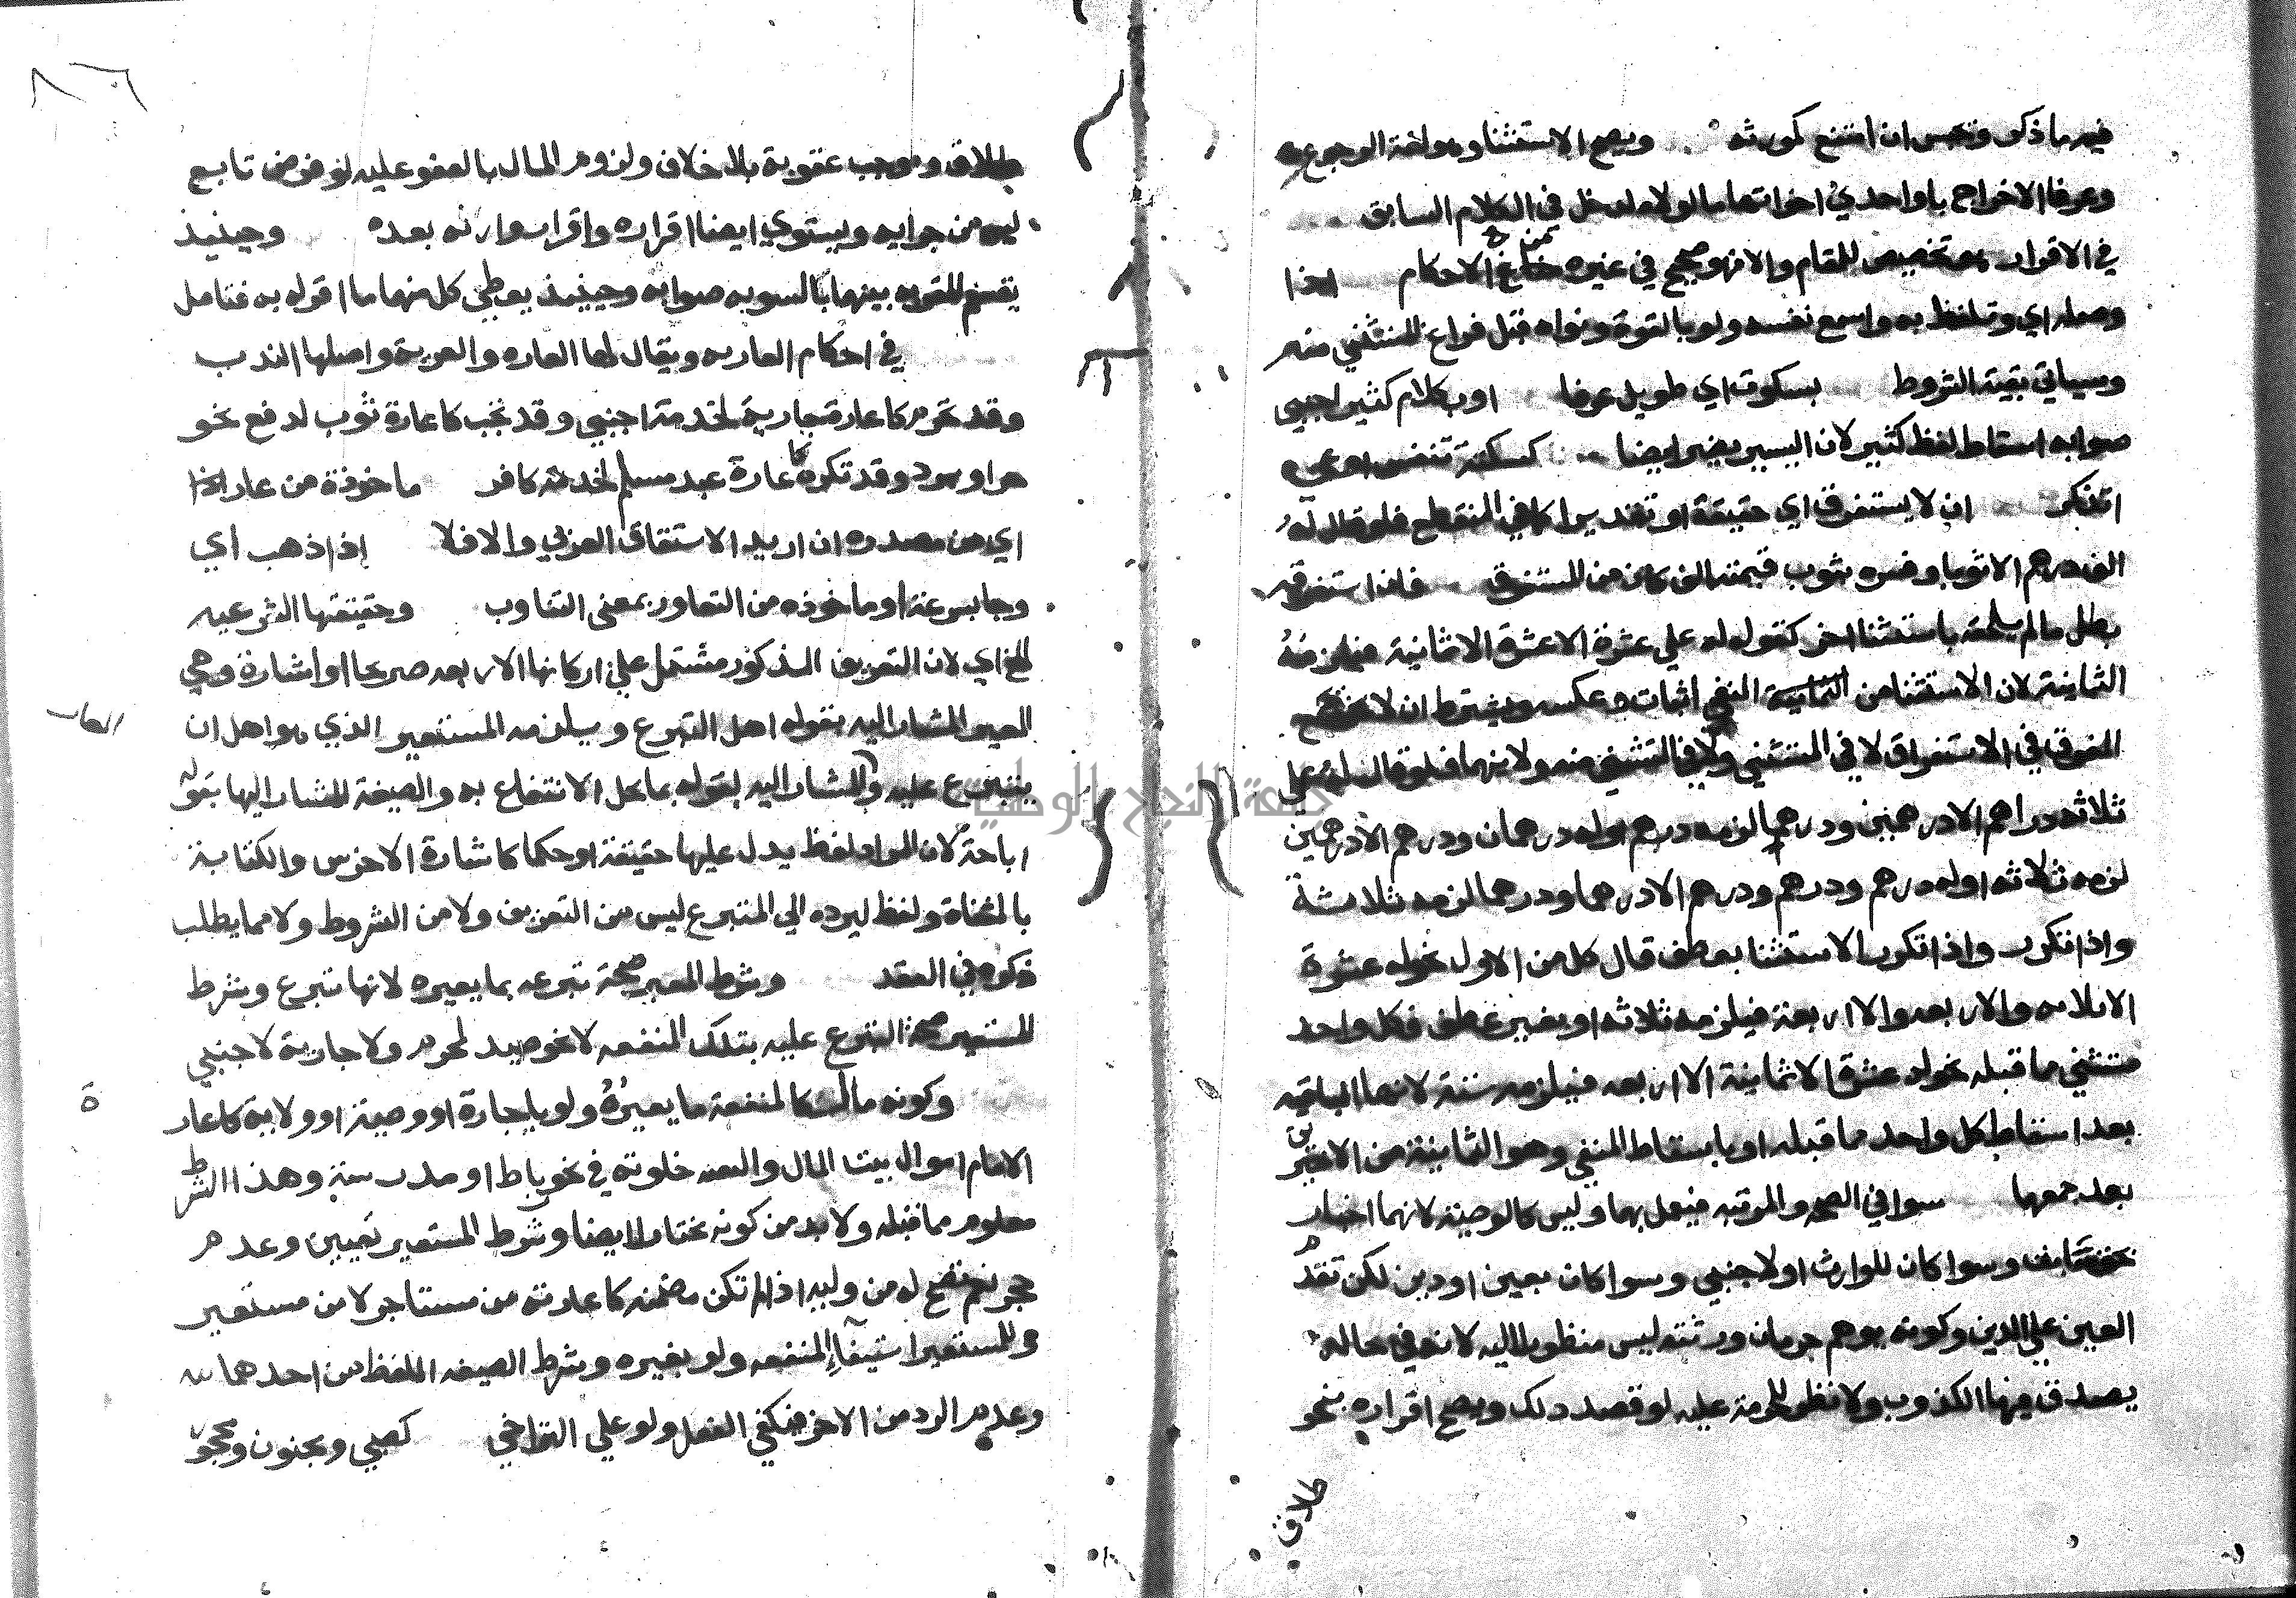 فيه ما ذكر وحبس ان امتنع كمورثه ويصح الاستثنا وهو لغة الرجوع
وعرفا الاخراج بالا واحدي اخواتها ما لولاه لدخل في الكلام السابق
في الاقرار هو تخصيص للمقام والا فهو صحيح في غيره من الاحكام اذا
وصله اي وتلفظ به واسمع نفسه ولو بالقوة ونواه قبل فراغ المستثني منه
وسياتي بقية الشروط بسكوت اي طويل عرفا او بكلام كثير اجنبي
صوابه اسقاط لفظ كثير لان اليسير يضر ايضا كسكتة تنفس او عي
اتذكر ان لا يستغرق اي حقيقة او تقديرا كما في المنقطع فلو قال له
الف درهم الا ثوبا وفسره بثوب قيمته الف كان من المستغرق فاذا استغرقه
بطل ما لم يلحقه باستثنا اخر كقوله له علي عشرة الا عشرة الا ثمانية فيلزمه
الثمانية لان الاستثنا من النفي اثبات وعكسه ويشترط ان لا يجمع
المفرق في الاستغراق لا في المستثني ولا في المستثني منه ولا فيهما فلو قال له علي
ثلاثة دراهم الا درهمين ودرهما لزمه درهم او له درهمان ودرهم الا درهمين
لزمه ثلاثه او له درهم ودرهم ودرهم الا درهما ودرهما لزمه ثلاثة
واذا تكرر واذا تكرر الاستثنا بعطف قال كل من الاول نحو له عشرة
الا ثلاثه والا اربعه فيلزمه ثلاثه او بغير عطف فكل واحد
مستثني مما قبله نحو له عشرة الا ثمانية الا اربعه فيلزمه ستة لانها الباقيه
بعد اسقاط كل واحد مما قبله او باسقاط المنفي وهو الثمانية من
بعد جمعها سوا في الصحه والمرتبه فيعمل بهما وليس كالوصية لانهما اخبار
وسوا كان للوارث او لاجنبي وسوا كان بعين او دين لكن تقدم
العين علي الدين وكونه يوهم حرمان ورثته ليس منظورا اليه لانه في حاله
يصدق فيها الكذوب ولا نظر للحرمة عليه لو قصد ذلك ويصح اقراره بنحو
طلاق
٨٦
طلاق وموجب عقوبة بلا خلاف ولزوم المال بالعفو عليه لو فرض تابع
ليس من جوابه ويستوي ايضا اقراره واقرار وارثه بعده وحينيذ
يقسم المقر به بينهما بالسويه صوابه وحينيذ يعطي كل منهما ما اقر له به فتامل
في احكام العاريه ويقال لها العاره والعرية واصلها الندب
وقد تحرم كاعارة جارية لخدمة اجنبي وقد تجب كاعارة ثوب لدفع نحو
حر او برد وقد تكره كاعارة عبد مسلم لخدمة كافر ماخوذة من عار اذا
اي من مصدره ان اريد الاشتقاق العربي والا فلا إذا ذهب اي
وجا بسرعة او ماخوذه من التعاور بمعني التناوب وحقيقتها الشرعيه
الخ اي لان التعريف المذكور مشتمل علي اركانها الاربعه صريحا او اشارة وهي
المعير المشار اليه بقوله اهل التبرع ويلزمه المستعير الذي هو اهل ان
يتبرع عليه والمشار اليه بقوله بما يحل الانتفاع به والصيغة المشار اليها بقوله
اباحة لان المراد لفظ يدل عليها حقيقة او حكما كاشارة الاخرس والكتابة
بالمثناة ولفظ ليرده الي المتبرع ليس من التعريف ولا من الشروط ولا مما يطلب
ذكره في العقد وشرط المعير صحة تبرعه بما يعيره لانها تبرع وشرط
المستعير صحة التبرع عليه بتلك المنفعه لا نحو صيد لمحرم ولا جارية لاجنبي
وكونه مالكا لمنفعة ما يعيره ولو باجارة او وصية او ولاية كاعار
الامام اموال بيت المال خلوته في نحو رباط او مدرسة وهذا الشرط
معلوم مما قبله ولا بد من كونه مختارا ايضا وشرط المستعير تعيين وعدم
حجر نعم تصح له من وليه اذا لم تكن مضمنه كاعارته من مستاجر لا من مستعير
وللمستعير استيفاء المنفعه ولو بغيره وشرط الصيغه اللفظ من احدهما
وعدم الرد من الاخر فيكفي الفعل ولو علي التراخي كصبي ومجنون ومحجور